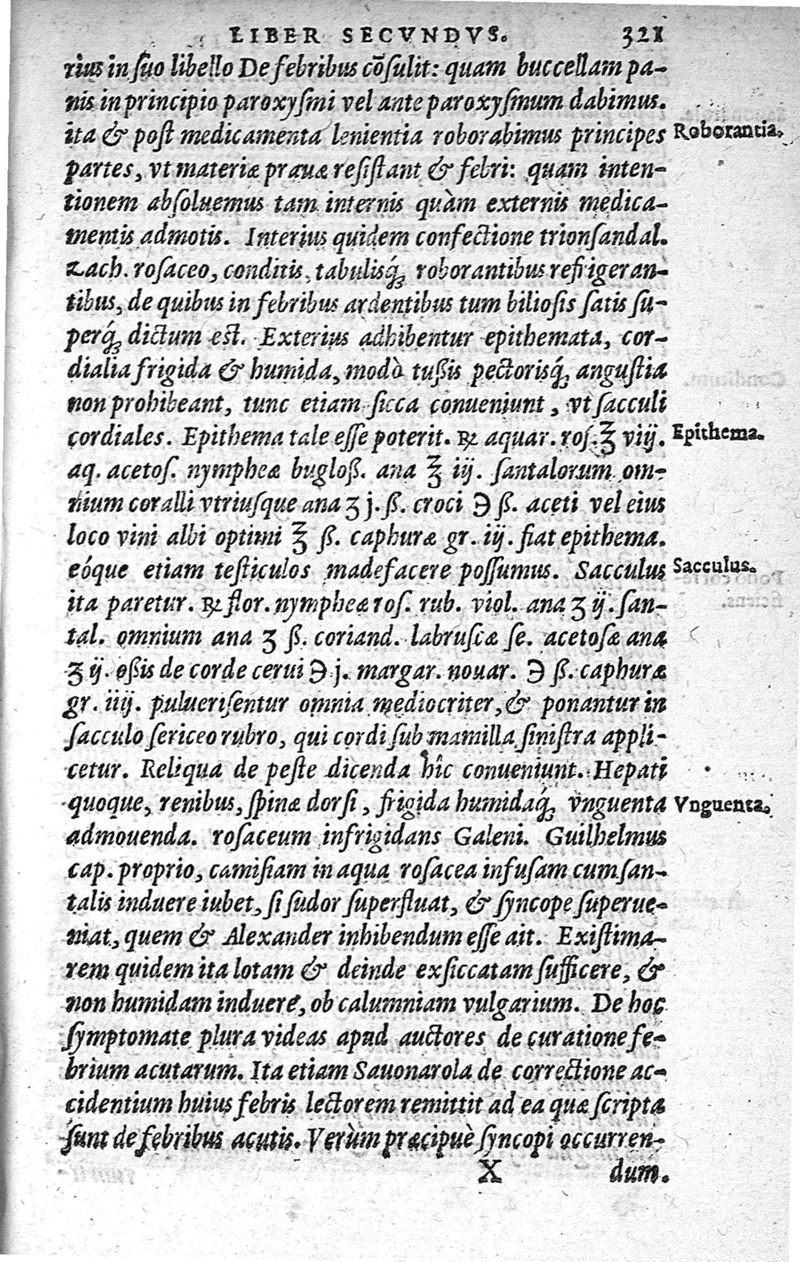 LIBER SECVNDVS. 321
rius in ſuo libello De febribus cõſulit: quam buccellam pa-
nis in principio paroxyſmi vel ante paroxyſmum dabimus.
ita & poſt medicamenta lenientia roborabimus principes Roborantia.
partes, vt materiæ prauæ reſiſtant & febri: quam inten-
tionem abſoluemus tam internis quàm externis medica-
mentis admotis. Interius quidem confectione trionſandal.
Zach. roſaceo, conditis, tabulisq́ꝫ roborantibus refrigeran-
tibus, de quibus in febribus ardentibus tum bilioſis ſatis ſu-
perq́ꝫ dictum est. Exterius adhibentur epithemata, cor-
dialia frigida & humida, modò tußis pectorisq́ꝫ anguſtia
non prohibeant, tunc etiam ſicca conueniunt, vt ſacculi
cordiales. Epithema tale eſſe poterit. ℞ aquar. roſ. ℥ viij. Epithema.
aq. acetoſ. nympheæ bugloß. ana ℥ iij. ſantalorum om-
nium coralli vtriuſque ana ʒ j. ß. croci ℈ ß. aceti vel eius
loco vini albi optimi ℥ ß. caphuræ gr. iij. fiat epithema.
eóque etiam teſticulos madefacere poſſumus. Sacculus Sacculus.
ita paretur. ℞ flor. nympheæ roſ. rub. viol. ana ʒ ij. ſan-
tal. omnium ana ʒ ß. coriand. labruſcæ ſe. acetoſæ ana
ʒ ij. oßis de corde cerui ℈ j. margar. nouar. ℈ ß. caphuræ
gr. iiij. pulueriſentur omnia mediocriter, & ponantur in
ſacculo ſericeo rubro, qui cordi ſub mamilla ſiniſtra appli-
cetur. Reliqua de peſte dicenda hîc conueniunt. Hepati
quoque, renibus, ſpinæ dorſi, frigida humidaq́ꝫ vnguenta Vnguenta.
admouenda. roſaceum infrigidans Galeni. Guilhelmus
cap. proprio, camiſiam in aqua roſacea infuſam cum ſan-
talis induere iubet, ſi ſudor ſuperfluat, & ſyncope ſuperue-
niat, quem & Alexander inhibendum eſſe ait. Exiſtima-
rem quidem ita lotam & deinde exſiccatam ſufficere, &
non humidam induere, ob calumniam vulgarium. De hoc
ſymptomate plura videas apud auctores de curatione fe-
brium acutarum. Ita etiam Sauonarola de correctione ac-
cidentium huius febris lectorem remittit ad ea quæ ſcripta
ſunt de febribus acutis. Verùm præcipuè ſyncopi occurren-
X dum.